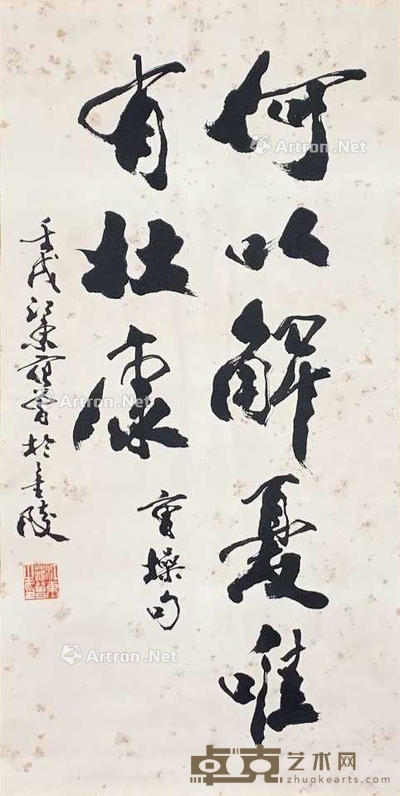 何以解憂唯
有杜康
曹操句
壬戌於金陵
Artron.Net
Artron.Net
Artron.Net
Artron.Net
卓克艺术网
zhuokearts.com